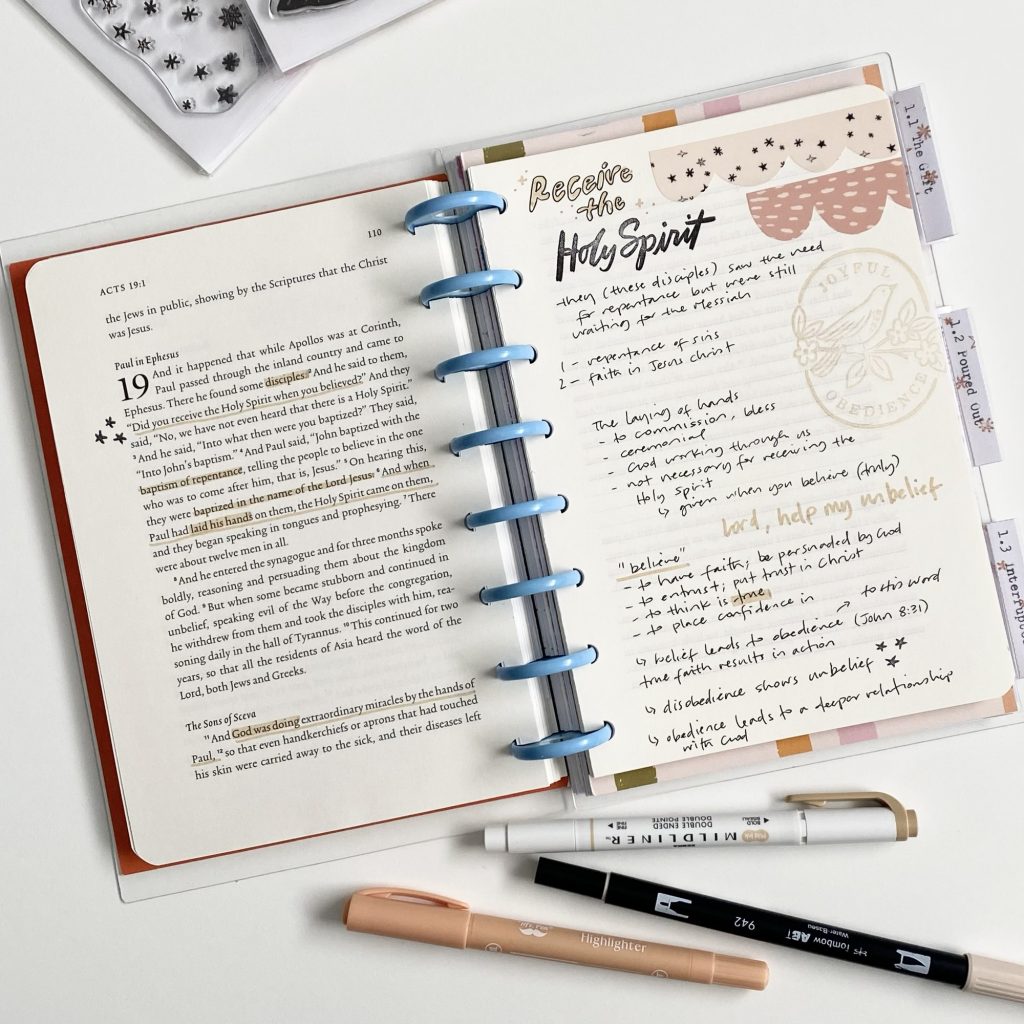 110
ACTS 19:1
the Jews in public, showing by the Scriptures that the Christ
was Jesus.
Paul in Ephesus
19 And it happened that while Apollos was at Corinth,
Paul passed through the inland country and came to
Ephesus. There he found some disciples. ² And he said to them,
“Did you receive the Holy Spirit when you believed?” And they
said, “No, we have not even heard that there is a Holy Spirit.”
³ And he said, “Into what then were you baptized?” They said,
“Into John’s baptism.” ⁴ And Paul said, “John baptized with the
baptism of repentance, telling the people to believe in the one
who was to come after him, that is, Jesus.” ⁵ On hearing this,
they were baptized in the name of the Lord Jesus. ⁶ And when
Paul had laid his hands on them, the Holy Spirit came on them,
and they began speaking in tongues and prophesying. ⁷ There
were about twelve men in all.
⁸ And he entered the synagogue and for three months spoke
boldly, reasoning and persuading them about the kingdom
of God. ⁹ But when some became stubborn and continued in
unbelief, speaking evil of the Way before the congregation,
he withdrew from them and took the disciples with him, rea-
soning daily in the hall of Tyrannus. ¹⁰ This continued for two
years, so that all the residents of Asia heard the word of the
Lord, both Jews and Greeks.
The Sons of Sceva
¹¹ And God was doing extraordinary miracles by the hands of
Paul, ¹² so that even handkerchiefs or aprons that had touched
his skin were carried away to the sick, and their diseases left
Receive
the
Holy Spirit
they (these disciples) saw the need
for repentance but were still
waiting for the Messiah
1 - repentance of sins
2 - faith in Jesus Christ
JOYFUL
OBEDIENCE
The laying of hands
- to commission, bless
- ceremonial
- God working through us
- not necessary for receiving the
Holy Spirit
↳ given when you believe (truly)
Lord, help my unbelief
"believe"
- to have faith; be persuaded by God
- to entrust; put trust in Christ
- to think is true
- to place confidence in
↳ belief leads to obedience → to His word
true faith results in action (John 8:31)
↳ disobedience shows unbelief
↳ obedience leads to a deeper relationship
with God
1.1 The Gift
1.2 Poured Out
1.3 Interrupt
MILDLINER
DOUBLE ENDED
DOUBLE POINTE
BOLD
FINE
942
Tombow ABT
Water-Based
Highlighter